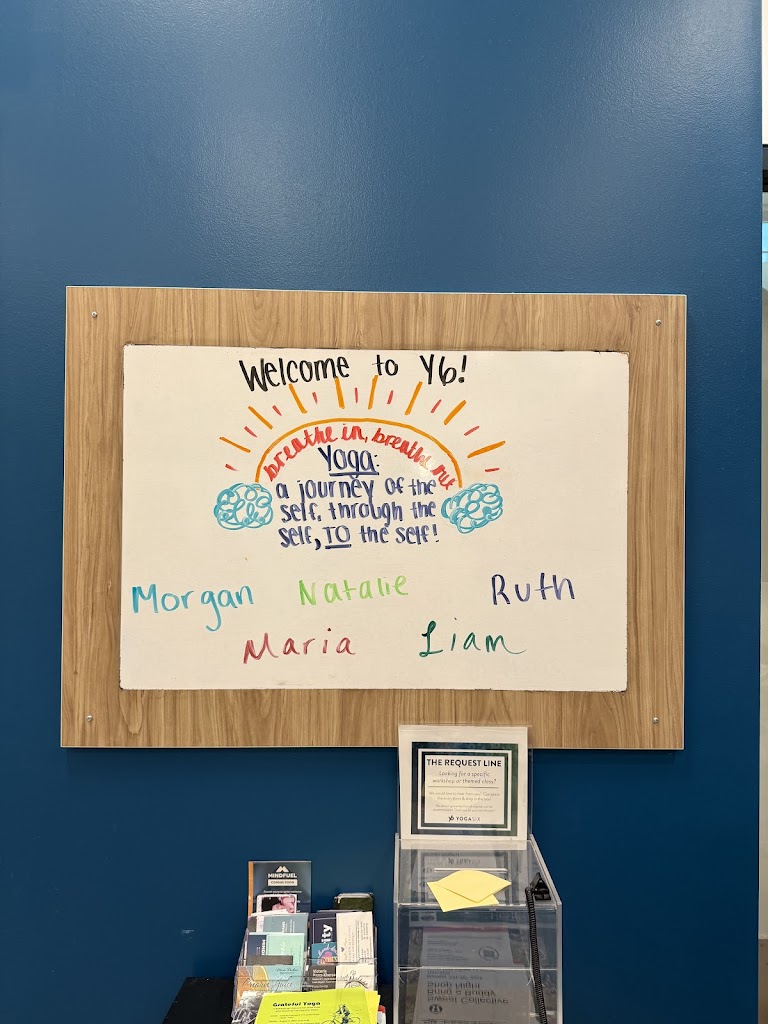 Welcome to Y6!
breathe in, breathe out
Yoga:
a journey of the
self, through the
self, TO the self!
Morgan Natalie Ruth
Maria Liam
THE REQUEST LINE
Looking for a specific
workshop or themed class?
YOGASIX
MINDFUEL
COMING SOON
Grateful Yoga
Sweat Collective
Bring a Buddy
Shop Night